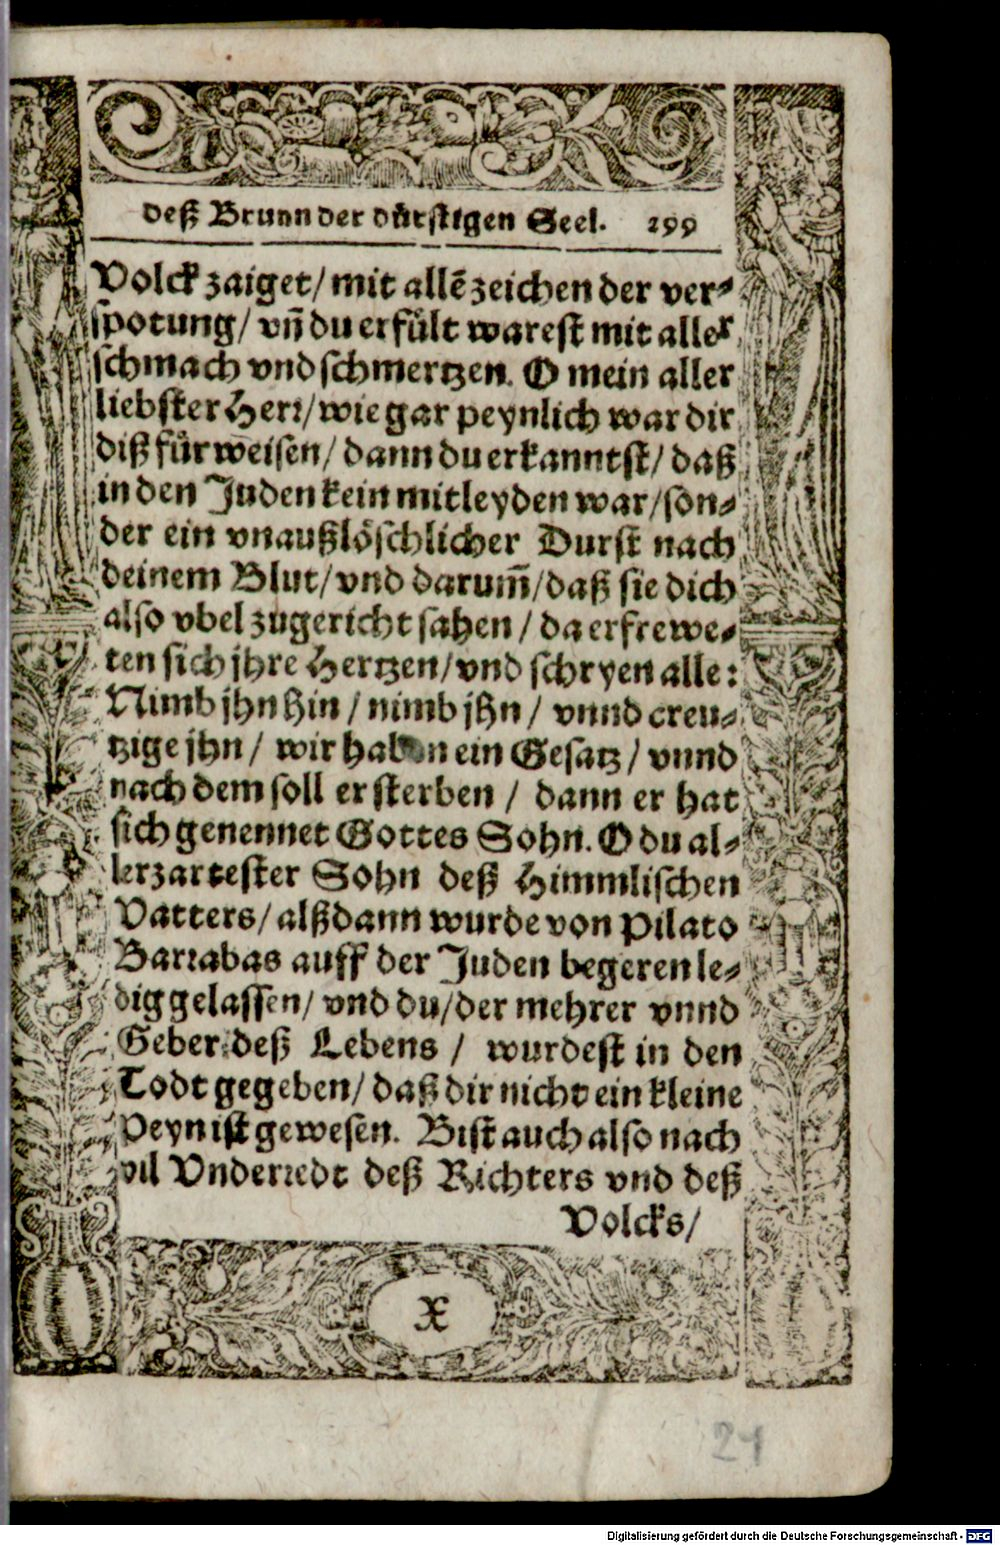 deß Brunn der dürstigen Seel. 299
Volck zaiget/ mit allẽ zeichen der ver⸗
spotung/ vñ du erfült warest mit aller
schmach vnd schmertzen. O mein aller
liebster Herr/ wie gar peynlich war dir
diß fürweisen/ dann du erkanntst/ daß
in den Juden kein mitleyden war/ son⸗
der ein vnaußlöschlicher Durst nach
deinem Blut/ vnd darum̃/ daß sie dich
also vbel zugericht sahen/ da erfrewe⸗
ten sich jhre Hertzen/ vnd schryen alle:
Nimb jhn hin/ nimb jhn/ vnnd creu⸗
tzige jhn/ wir haben ein Gesatz/ vnnd
nach dem soll er sterben/ dann er hat
sich genennet Gottes Sohn. O du al⸗
lerzartester Sohn deß Himmlischen
Vatters/ alßdann wurde von Pilato
Barrabas auff der Juden begeren le⸗
dig gelassen/ vnd du/ der mehrer vnnd
Geber deß Lebens/ wurdest in den
Todt gegeben/ daß dir nicht ein kleine
Peyn ist gewesen. Bist auch also nach
vil Vnderredt deß Richters vnd deß
Volcks/
X
21
Digitalisierung gefördert durch die Deutsche Forschungsgemeinschaft - DFG